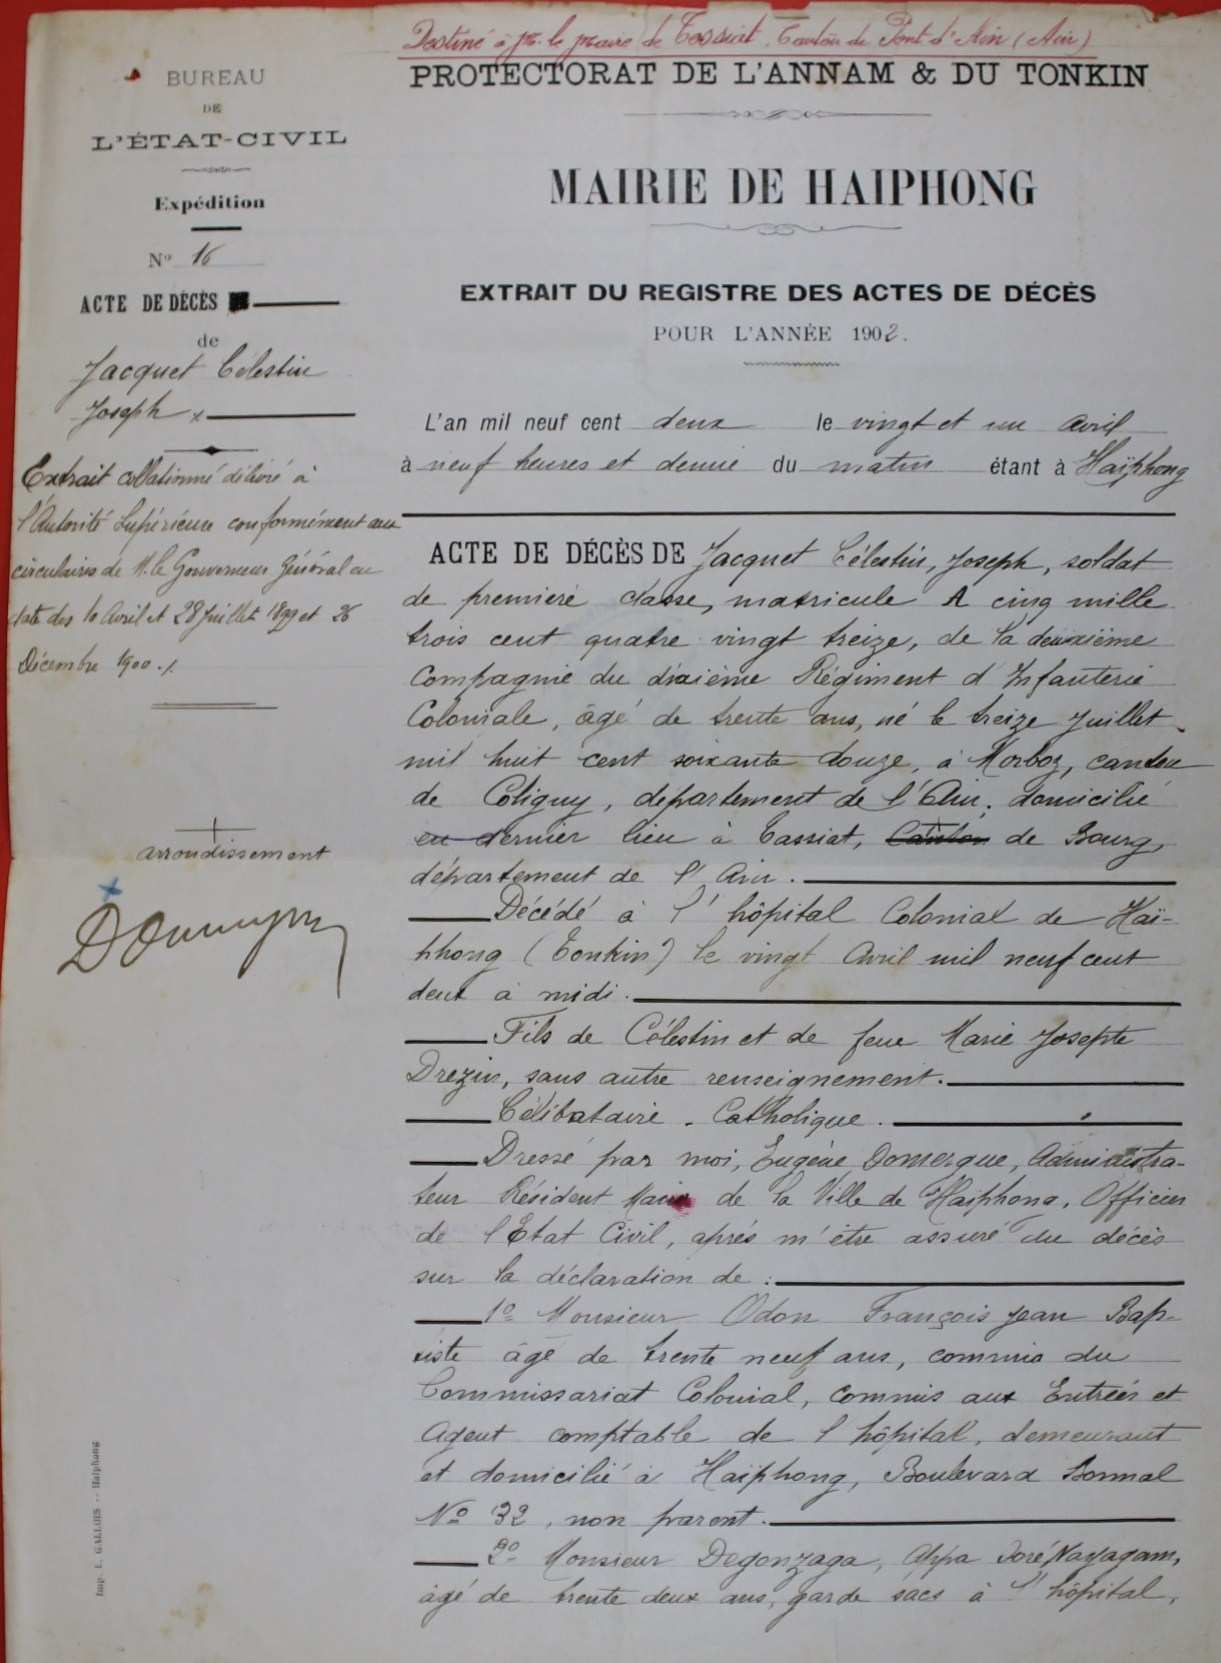 Destiné à Mr. le Maire de Tossiat. Canton de Pont d'Ain (Ain)
BUREAU
DE
L'ÉTAT-CIVIL
Expédition
No 16
ACTE DE DÉCÈS
de
Jacquet Célestin
Joseph
Extrait collationné délivré à
l'Autorité Supérieure conformément aux
circulaires de M. le Gouverneur Général en
date des 10 Avril et 28 Juillet 1899 et 26
Décembre 1900 ./.
arrondissement
Imp. L. GALLOIS -- Haiphong
PROTECTORAT DE L'ANNAM & DU TONKIN
MAIRIE DE HAIPHONG
EXTRAIT DU REGISTRE DES ACTES DE DÉCÈS
POUR L'ANNÉE 1902.
L'an mil neuf cent deux le vingt et un Avril
à neuf heures et demie du matin étant à Haïphong
ACTE DE DÉCÈS DE Jacquet Célestin, Joseph, soldat
de première classe, matricule A cinq mille
trois cent quatre vingt treize, de la deuxième
Compagnie du dixième Régiment d'Infanterie
Coloniale, âgé de trente ans, né le treize Juillet
mil huit cent soixante douze, à Morboz, canton
de Coligny, département de l'Ain, domicilié
en dernier lieu à Tassiat, Canton de Bourg,
département de l'Ain.
Décédé à l'hôpital Colonial de Haï-
phong (Tonkin) le vingt Avril mil neuf cent
deux à midi.
Fils de Célestin et de feue Marie Josepte
Drezin, sans autre renseignement.
Célibataire. Catholique.
Dressé par moi, Eugène Domergue, Administra-
teur Résident Maire de la Ville de Haiphong, Officier
de l'Etat Civil, après m'être assuré du décès
sur la déclaration de :
1o Monsieur Odon François Jean Bap-
tiste âgé de trente neuf ans, commis du
Commissariat Colonial, Commis aux Entrées et
Agent comptable de l'hôpital, demeurant
et domicilié à Haïphong, Boulevard Bonnal
No 32, non parent.
2o Monsieur Degonzaga, Appa José Nayagam,
âgé de trente deux ans, garde sacs à l'hôpital,